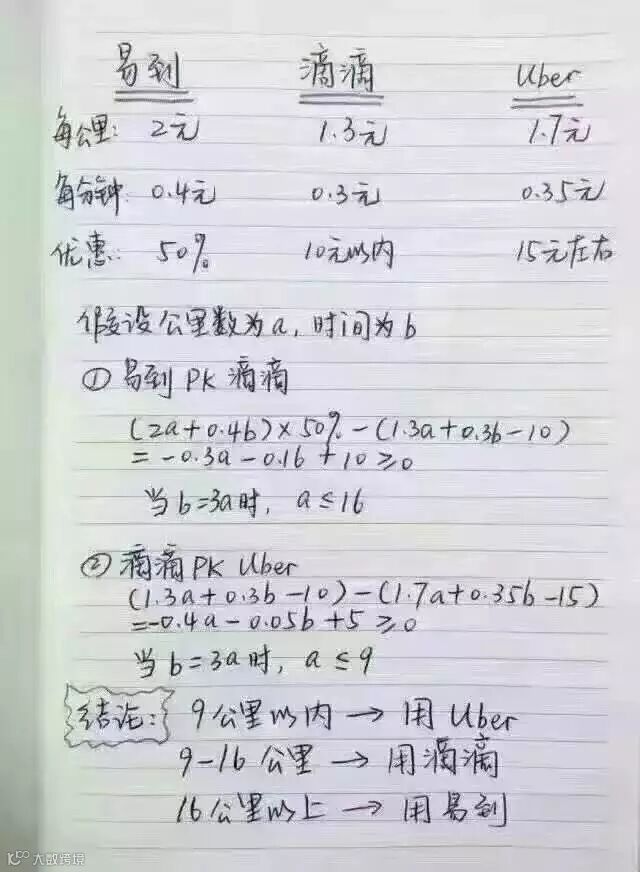 易到 滴滴 Uber
每公里: 2元 1.3元 1.7元
每分钟: 0.4元 0.3元 0.35元
优惠: 50% 10元以内 15元左右
假设公里数为a, 时间为b
① 易到 PK 滴滴
(2a+0.4b)×50%-(1.3a+0.3b-10)
=-0.3a-0.1b+10≥0
当b=3a时, a≤16
② 滴滴 PK Uber
(1.3a+0.3b-10)-(1.7a+0.35b-15)
=-0.4a-0.05b+5≥0
当b=3a时, a≤9
结论: 9公里以内→用Uber
9-16公里→用滴滴
16公里以上→用易到
大数跨境